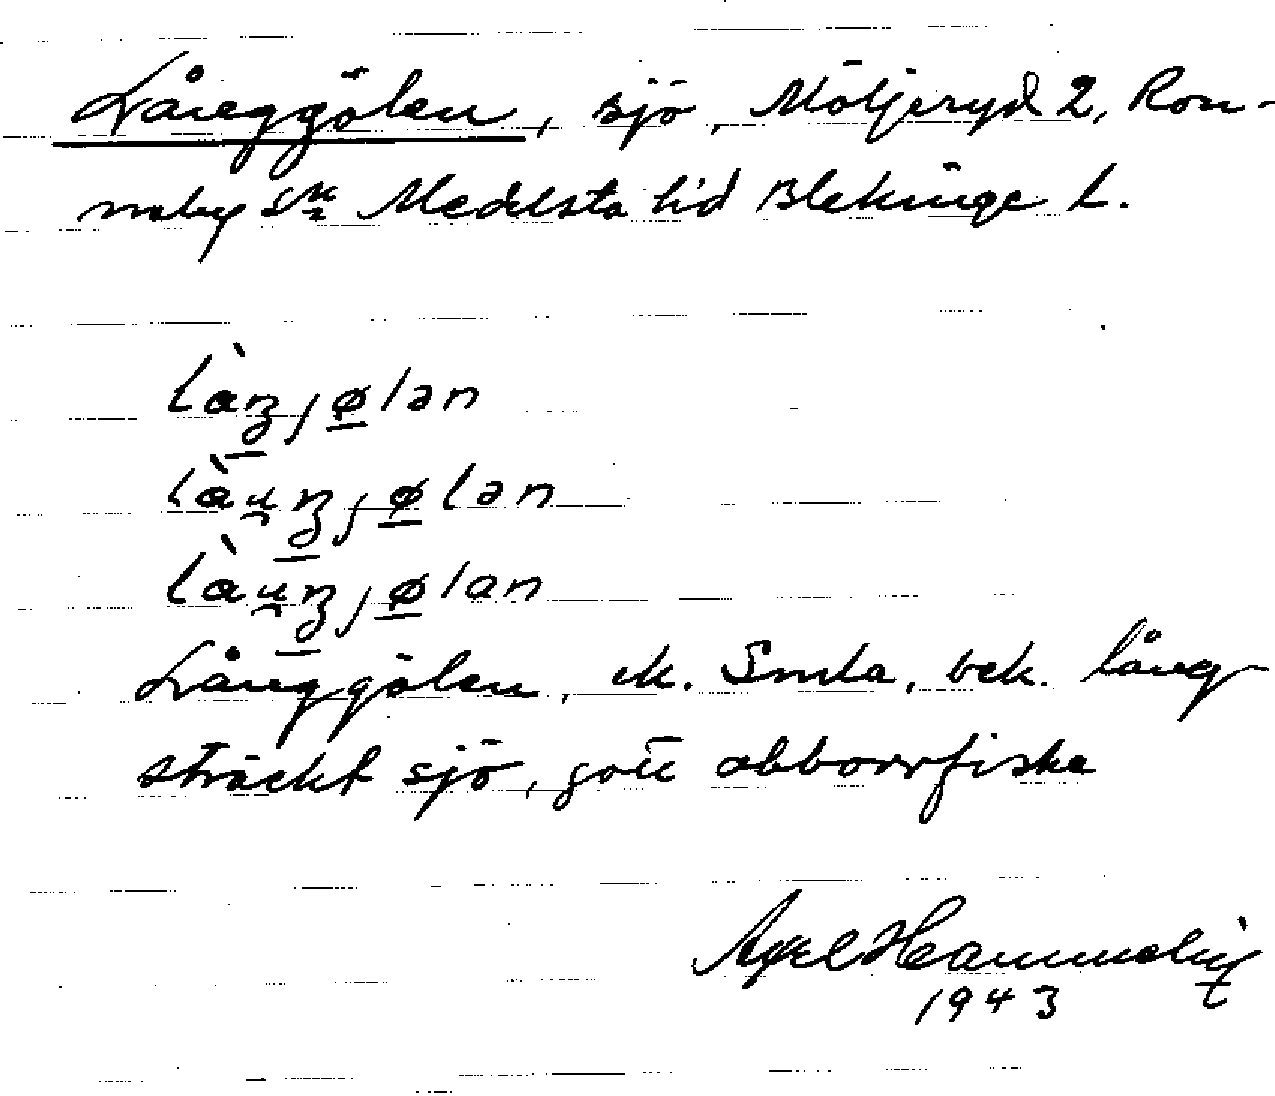 Långgölen, sjö, Möljeryd 2, Ron-
neby sn Medelsta hd Blekinge l.
làŋjølən
làu̯ŋjølən
làu̯ŋjølan
Långgölen, ek. Smla, bek. lång-
sträckt sjö, gott abborrfiske
Axel Hammelin
1943